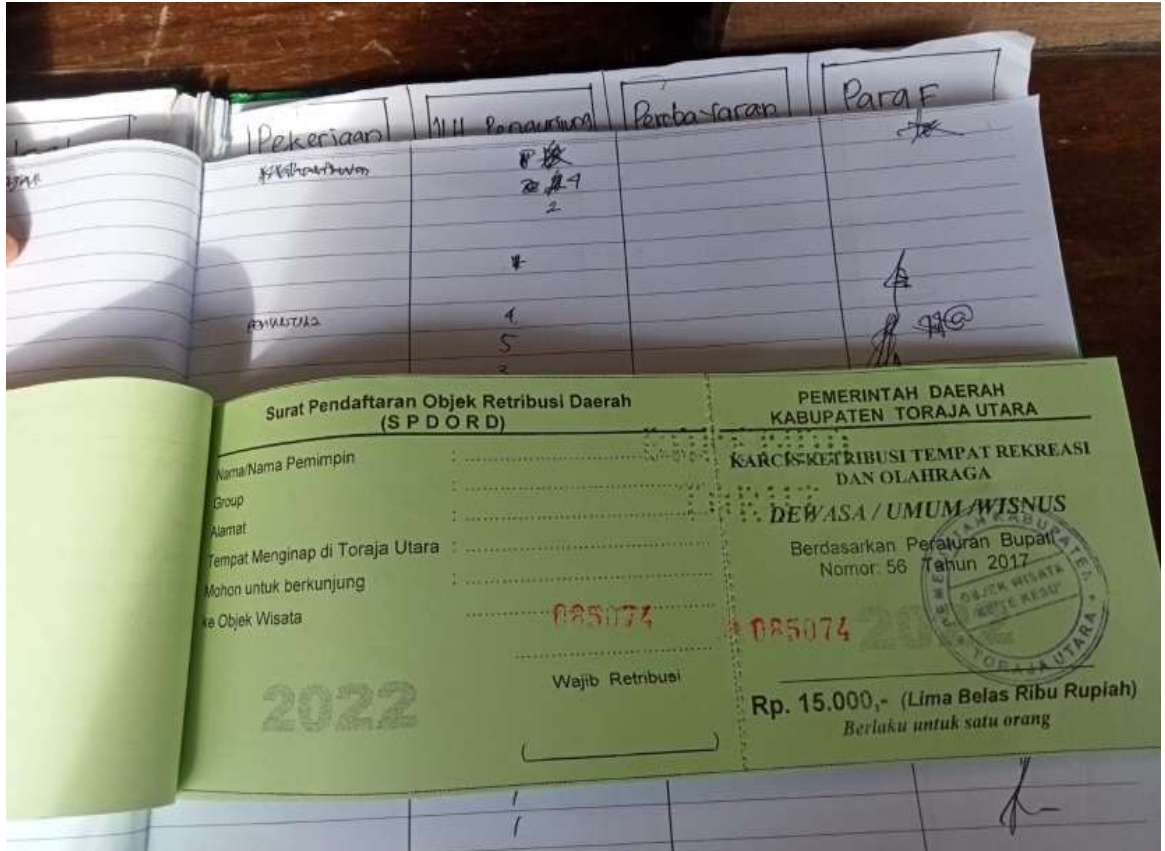 Pekerjaan
JLH Pengunjung
Paraf
4
2
4
5
Surat Pendaftaran Objek Retribusi Daerah
(S P D O R D)
Nama/Nama Pemimpin : 
Group :
Alamat :
Tempat Menginap di Toraja Utara :
Mohon untuk berkunjung :
ke Objek Wisata
085074
Wajib Retribusi
2022
PEMERINTAH DAERAH
KABUPATEN TORAJA UTARA
KARCIS RETRIBUSI TEMPAT REKREASI
DAN OLAHRAGA
DEWASA / UMUM / WISNUS
Berdasarkan Peraturan Bupati
Nomor: 56 Tahun 2017
085074
2022
PEMERINTAH KABUPATEN
OBJEK WISATA
KE'TE KESU'
TORAJA UTARA
Rp. 15.000,- (Lima Belas Ribu Rupiah)
Berlaku untuk satu orang
1
1